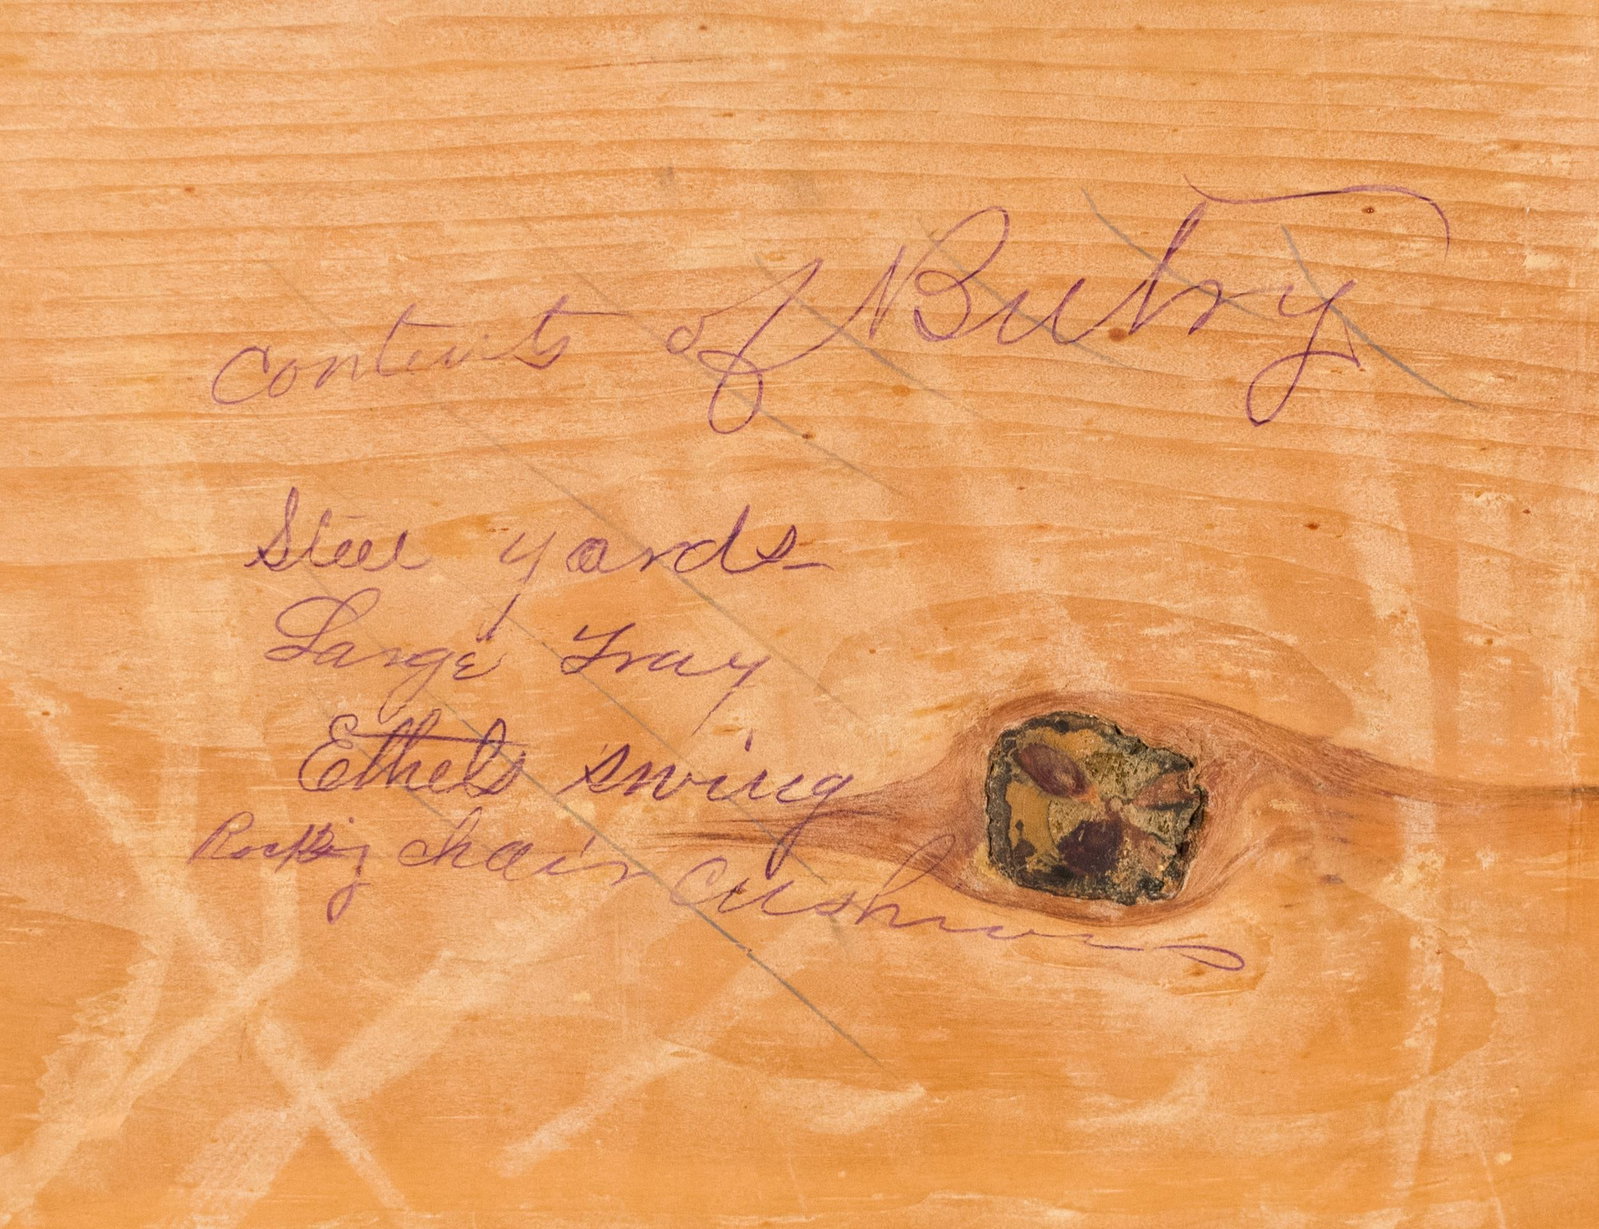 contents of Butry
Steel yards-
Large Tray
Ethels swing
Rocking chair cushions